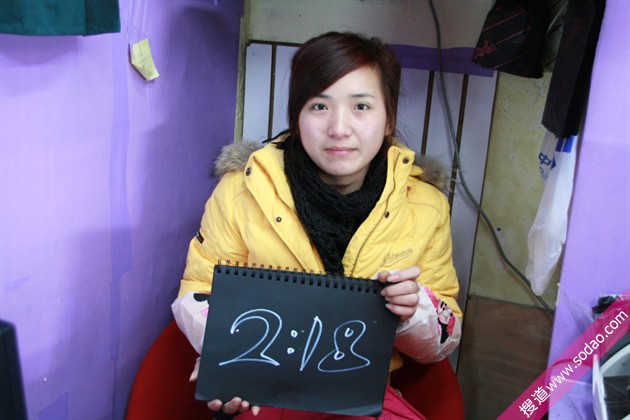 2:18
搜道 www.sodao.com